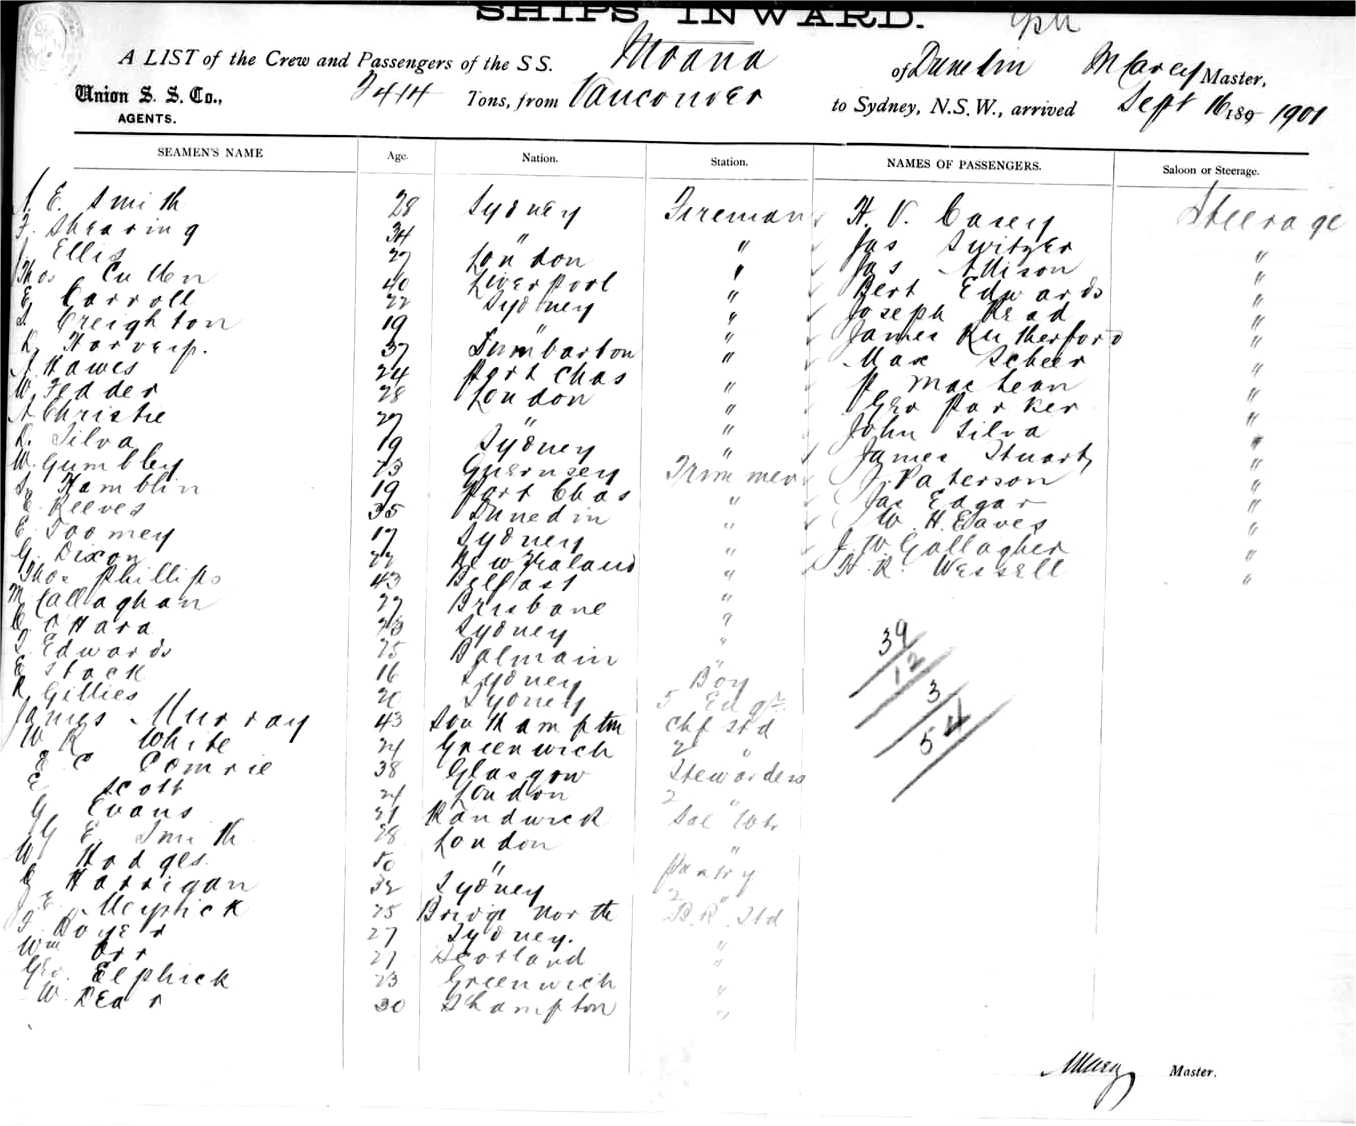 SHIPS INWARD.
A LIST of the Crew and Passengers of the S S. Moana of Dunedin M Carey Master,
Union S. S. Co., AGENTS. 2414 Tons, from Vancouver to Sydney, N.S.W., arrived Sept 16 189 1901
SEAMEN'S NAME Age. Nation. Station. NAMES OF PASSENGERS. Saloon or Steerage.
E. Smith 28 Sydney Fireman H. V. Casey Steerage
F. Shearing 34 " " Jas Switzer "
J Ellis 27 London " Jas Allison "
Thos Cullen 40 Liverpool " Bert Edwards "
E Carroll 22 Sydney " Joseph Read "
S Creighton 19 " " James Rutherford "
D. Harvey. 37 Dumbarton " Max Scheer "
A Hawes 24 Port Chas " P. MacLean "
W. Fedder 28 London " Geo Parker "
A Christie 27 " " John Silva "
D. Silva 19 Sydney " James Stuart "
W. Gumbley 23 Guernsey Trimmer J. Paterson "
S. Hamblin 19 Port Chas " Jas Edgar "
C Reeves 35 Dunedin " W. H. Eaves "
E Toomey 17 Sydney " J. W. Gallagher "
G. Dixon 22 New Zealand " H. R. Wessell "
Thos Phillips 43 Belfast "
M Callaghan 27 Brisbane "
C O'Hara 23 Sydney "
T. Edwards 25 Balmain "
E Stack 16 Sydney Boy
R Gillies 20 Sydney 5 Eng
James Murray 43 Southampton Chf Std
W R White 24 Greenwich 2 "
E C Comrie 38 Glasgow Stewardess
E Scott 24 London 2 "
G Evans 21 Randwick Sal Wtr
G E Smith 28 London "
W Hodges 50 " Pantry
C Harrigan 32 Sydney 2 "
J. E. Meyrick 25 Bridge North B.R. Std
T. Boyer 27 Sydney. "
Wm Orr 27 Scotland "
Geo. Elphick 23 Greenwich "
W. Dear 30 S'hampton "
39
12
3
54
M Carey Master.